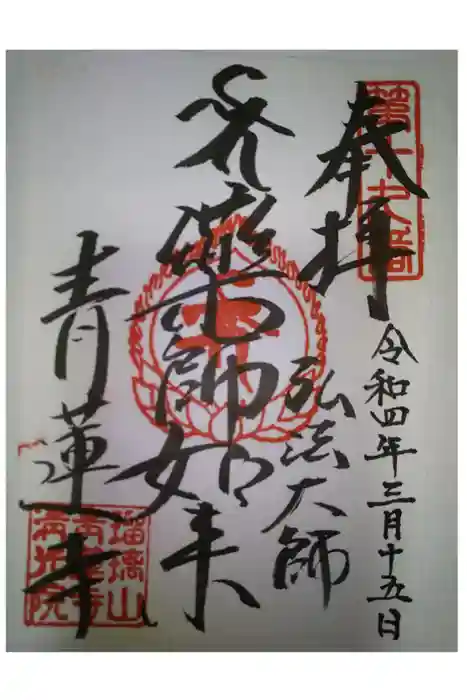 第十九番
奉拝
令和四年三月十五日
弘法大師
薬師如来
青蓮寺
瑠璃山
青蓮寺